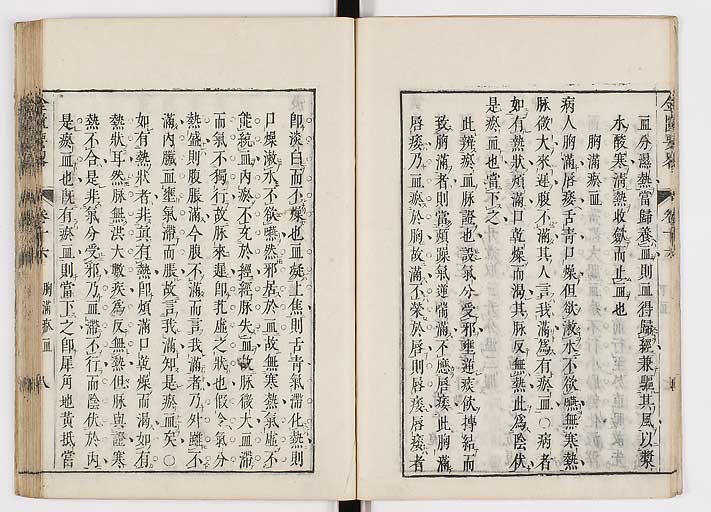 血分濕熱當歸養血則血得歸經兼驅其風以漿
水酸寒清熱收歛而止血也
胸滿瘀血
病人胸滿唇痿舌青口燥但欲漱水不欲嚥無寒熱
脉微大來遲腹不滿其人言我滿爲有瘀血○病者
如有熱狀煩滿口乾燥而渴其脉反無熱此爲陰伏
是瘀血也當下之
此辨瘀血脉證也設氣分受邪壅逆痰飲摶結而
致胸滿者則當煩躁氣逆喘滿不應唇痿此胸滿
唇痿乃血瘀於胸故滿不榮於唇則唇痿唇痿者
卽淡白而不燥也血凝上焦則舌青氣滯化熱則
口燥漱水不欲嚥然邪居於血故無寒熱氣虛不
能統血內瘀不充於經經脉失血故脉微大血滯
而氣不獨行故脉來遲卽芤虛之狀也假令氣分
熱盛則腹脹滿今腹不滿而言我滿者乃外雖不
滿內臟血壅氣滯而脹故言我滿知是瘀血矣○
如有熱狀者非眞有熱卽煩滿口乾燥而渴如有
熱狀耳然脉無洪大數疾爲反無熱但脉與證寒
熱不合是非氣分受邪乃血滯不行而陰伏於內
是瘀血也旣有瘀血則當下之卽犀角地黃抵當
金匱要畧
卷十六
胸滿瘀血
八